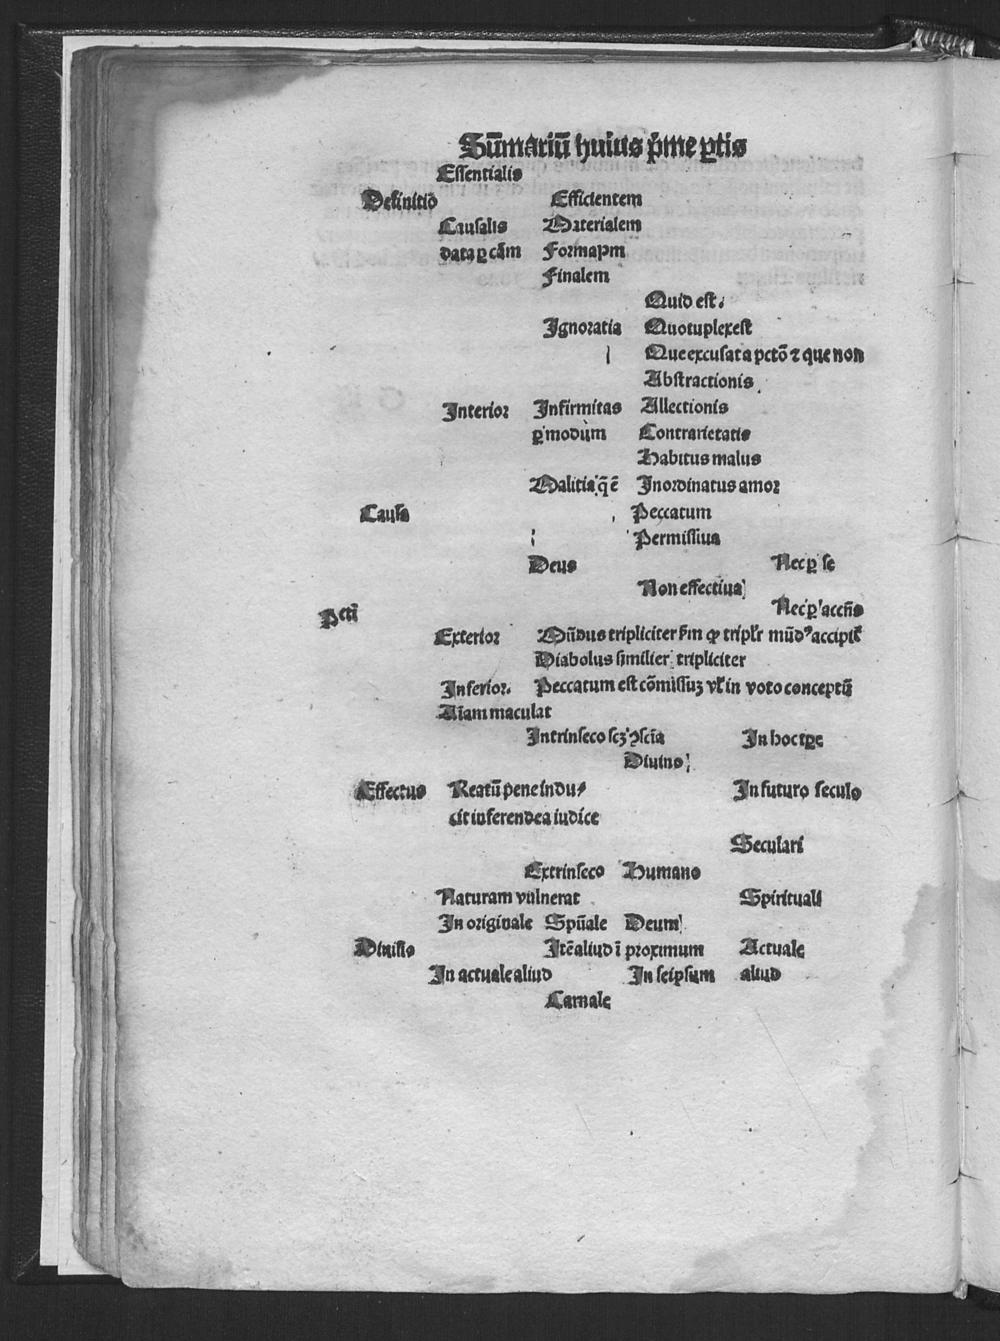 Sūmariū huius p̄me ꝑtis
Essentialis
Definitiō Efficientem
Causalis Materialem
data ꝑ cām Formaƿm
Finalem
Quid est.
Ignorātia Quotuplex est
Que excusat a pctō ⁊ que non
Abstractionis
Interior Infirmitas Allectionis
ꝑ modum Contrarietatis
Habitus malus
Malitia q̄ ē Inordinatus amor
Causa Peccatum
Permissiua
Deus Nec ꝑ se
Non effectiua
Nec ꝑ accn̄s
Pctī
Exterior Mūdus tripliciter ẜm ꝙ triplr̄ mūdꝰ accipit̄
Diabolus similier tripliciter
Inferior. Peccatum est cōmissuꝫ vl̓ in voto conceptū
Aīam maculat
Intrinseco scꝫ ꝯsciā In hoc tꝑe
Diuino
Effectus Reatū pene indu⸗ In futuro seculo
cit inferende a iudice
Seculari
Extrinseco Humano
Naturam vulnerat Spirituali
In originale Spūale Deum
Diuisio Itē aliud ī proximum Actuale
In actuale aliud In seipsum aliud
Carnale